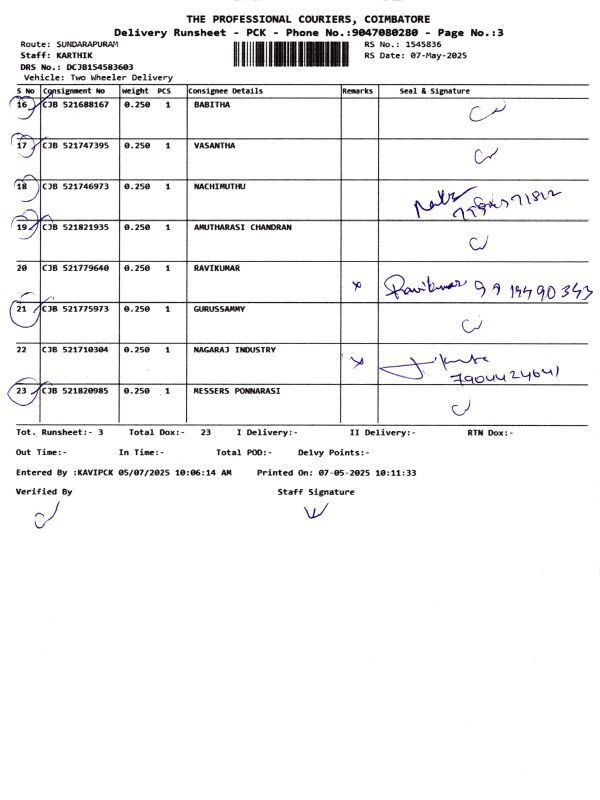 THE PROFESSIONAL COURIERS, COIMBATORE
Delivery Runsheet - PCK - Phone No.:9047080280 - Page No.:3
Route: SUNDARAPURAM RS No.: 1545836
Staff: KARTHIK RS Date: 07-May-2025
DRS No.: DCJB154583603
Vehicle: Two Wheeler Delivery
S No Consignment No Weight PCS Consignee Details Remarks Seal & Signature
16 CJB 521688167 0.250 1 BABITHA
17 CJB 521747395 0.250 1 VASANTHA
18 CJB 521746973 0.250 1 NACHIMUTHU
19 CJB 521821935 0.250 1 AMUTHARASI CHANDRAN
20 CJB 521779640 0.250 1 RAVIKUMAR x Ravikumar 9919490343
21 CJB 521775973 0.250 1 GURUSSAMMY
22 CJB 521710304 0.250 1 NAGARAJ INDUSTRY x
7904424641
23 CJB 521820985 0.250 1 MESSERS PONNARASI
Tot. Runsheet:- 3 Total Dox:- 23 I Delivery:- II Delivery:- RTN Dox:-
Out Time:- In Time:- Total POD:- Delvy Points:-
Entered By :KAVIPCK 05/07/2025 10:06:14 AM Printed On: 07-05-2025 10:11:33
Verified By Staff Signature